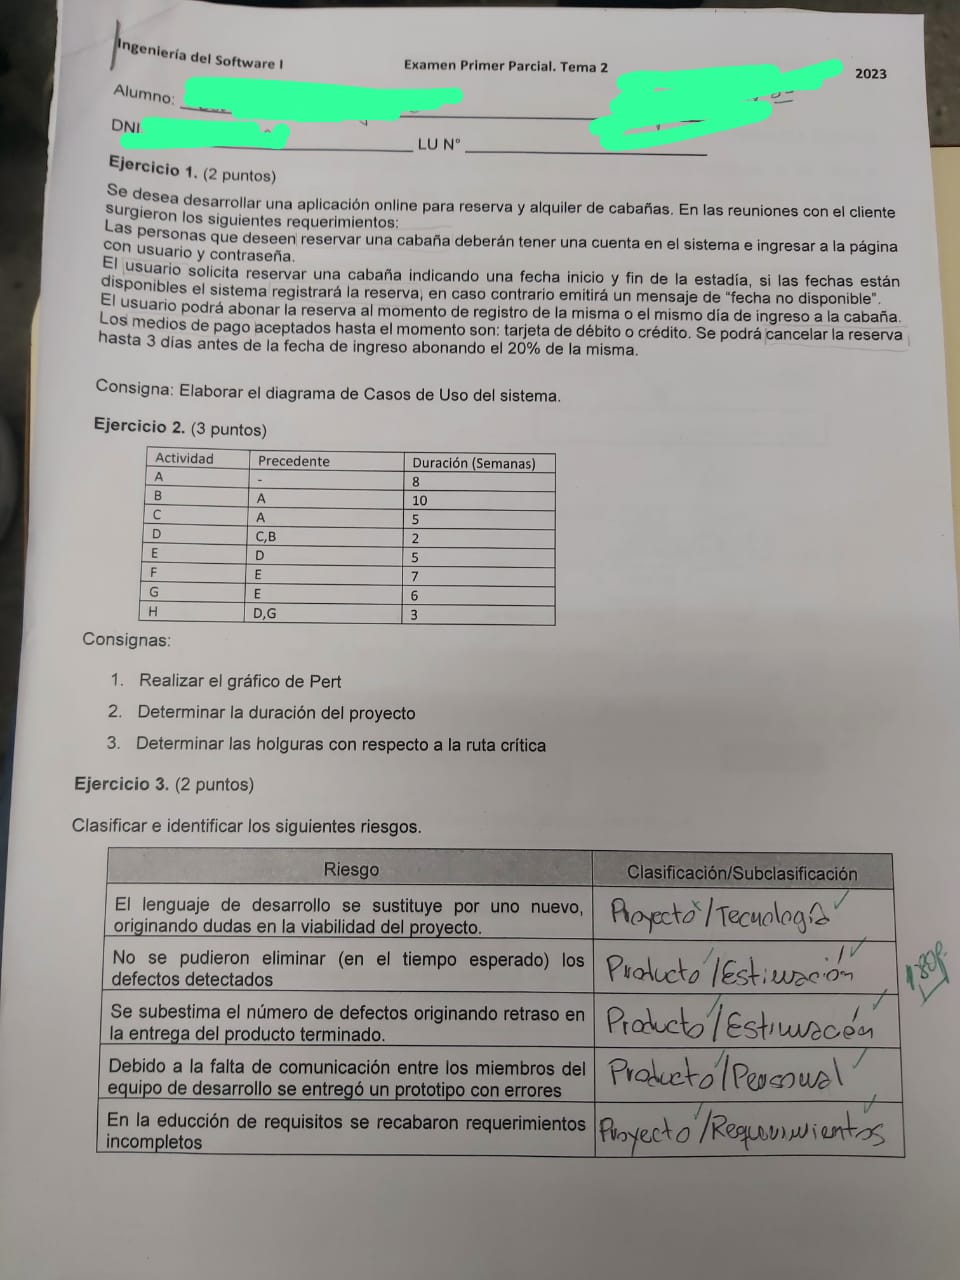 Ingeniería del Software I Examen Primer Parcial. Tema 2 2023
Alumno:
DNI
LU N°
Ejercicio 1. (2 puntos)
Se desea desarrollar una aplicación online para reserva y alquiler de cabañas. En las reuniones con el cliente
surgieron los siguientes requerimientos:
Las personas que deseen reservar una cabaña deberán tener una cuenta en el sistema e ingresar a la página
con usuario y contraseña.
El usuario solicita reservar una cabaña indicando una fecha inicio y fin de la estadía, si las fechas están
disponibles el sistema registrará la reserva, en caso contrario emitirá un mensaje de "fecha no disponible".
El usuario podrá abonar la reserva al momento de registro de la misma o el mismo día de ingreso a la cabaña.
Los medios de pago aceptados hasta el momento son: tarjeta de débito o crédito. Se podrá cancelar la reserva
hasta 3 días antes de la fecha de ingreso abonando el 20% de la misma.
Consigna: Elaborar el diagrama de Casos de Uso del sistema.
Ejercicio 2. (3 puntos)
Actividad Precedente Duración (Semanas)
A - 8
B A 10
C A 5
D C,B 2
E D 5
F E 7
G E 6
H D,G 3
Consignas:
1. Realizar el gráfico de Pert
2. Determinar la duración del proyecto
3. Determinar las holguras con respecto a la ruta crítica
Ejercicio 3. (2 puntos)
Clasificar e identificar los siguientes riesgos.
Riesgo Clasificación/Subclasificación
El lenguaje de desarrollo se sustituye por uno nuevo,
originando dudas en la viabilidad del proyecto.
Proyecto/Tecnología
No se pudieron eliminar (en el tiempo esperado) los
defectos detectados
Producto/Estimación
Se subestima el número de defectos originando retraso en
la entrega del producto terminado.
Producto/Estimación
Debido a la falta de comunicación entre los miembros del
equipo de desarrollo se entregó un prototipo con errores
Producto/Personal
En la educción de requisitos se recabaron requerimientos
incompletos
Proyecto/Requerimientos